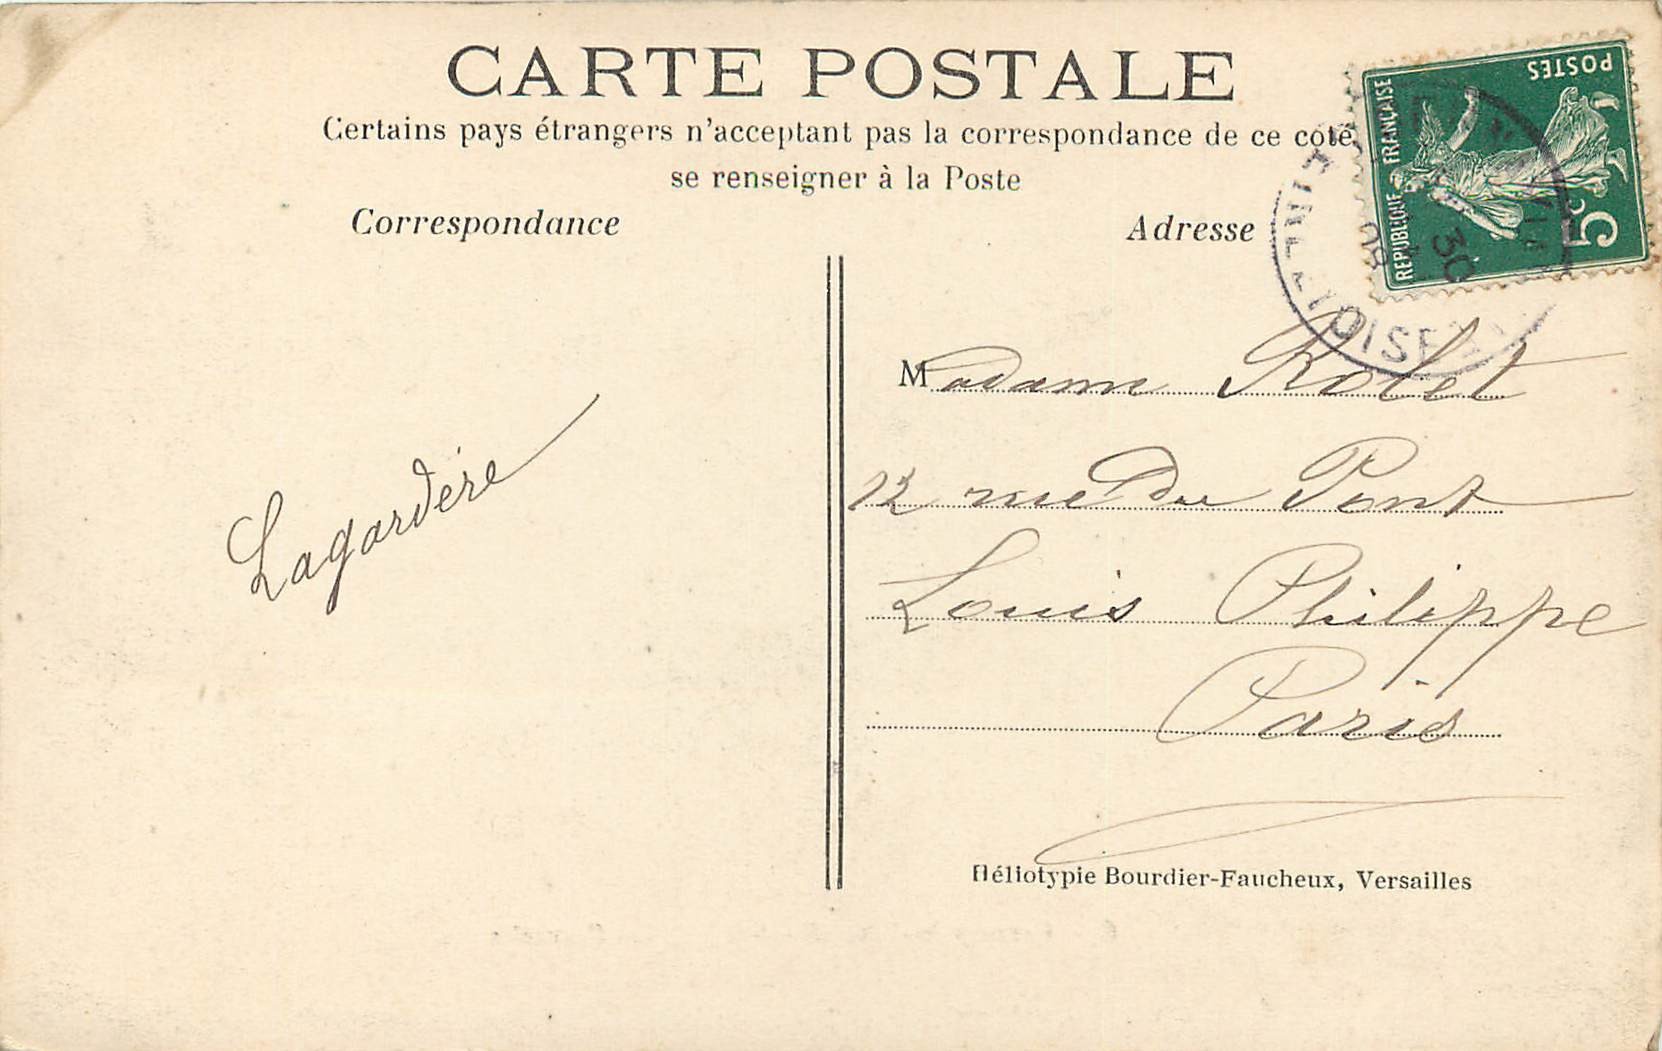 CARTE POSTALE
Certains pays étrangers n'acceptant pas la correspondance de ce coté,
se renseigner à la Poste
Correspondance
Adresse
POSTES
REPUBLIQUE FRANÇAISE
5c
30
OISE
Madame Robet
12 rue Du Pont
Louis Philippe
Paris
Lagardère
Héliotypie Bourdier-Faucheux, Versailles